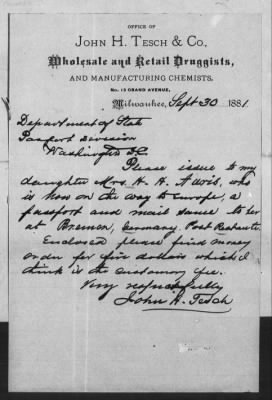 OFFICE OF
JOHN H. TESCH & CO.,
Wholesale and Retail Druggists,
AND MANUFACTURING CHEMISTS,
No. 13 GRAND AVENUE,
Milwaukee, Sept 30 1881.
Department of State
Passport Division
Washington DC
Please issue to my
daughter Mrs. H. H. who
is now on the way to Europe, a
passport and mail same to her
at Bremen, Germany. Post Restante.
Enclosed please find money
order for five dollars which I
think is the customary fee.
Very respectfully
John H. Tesch